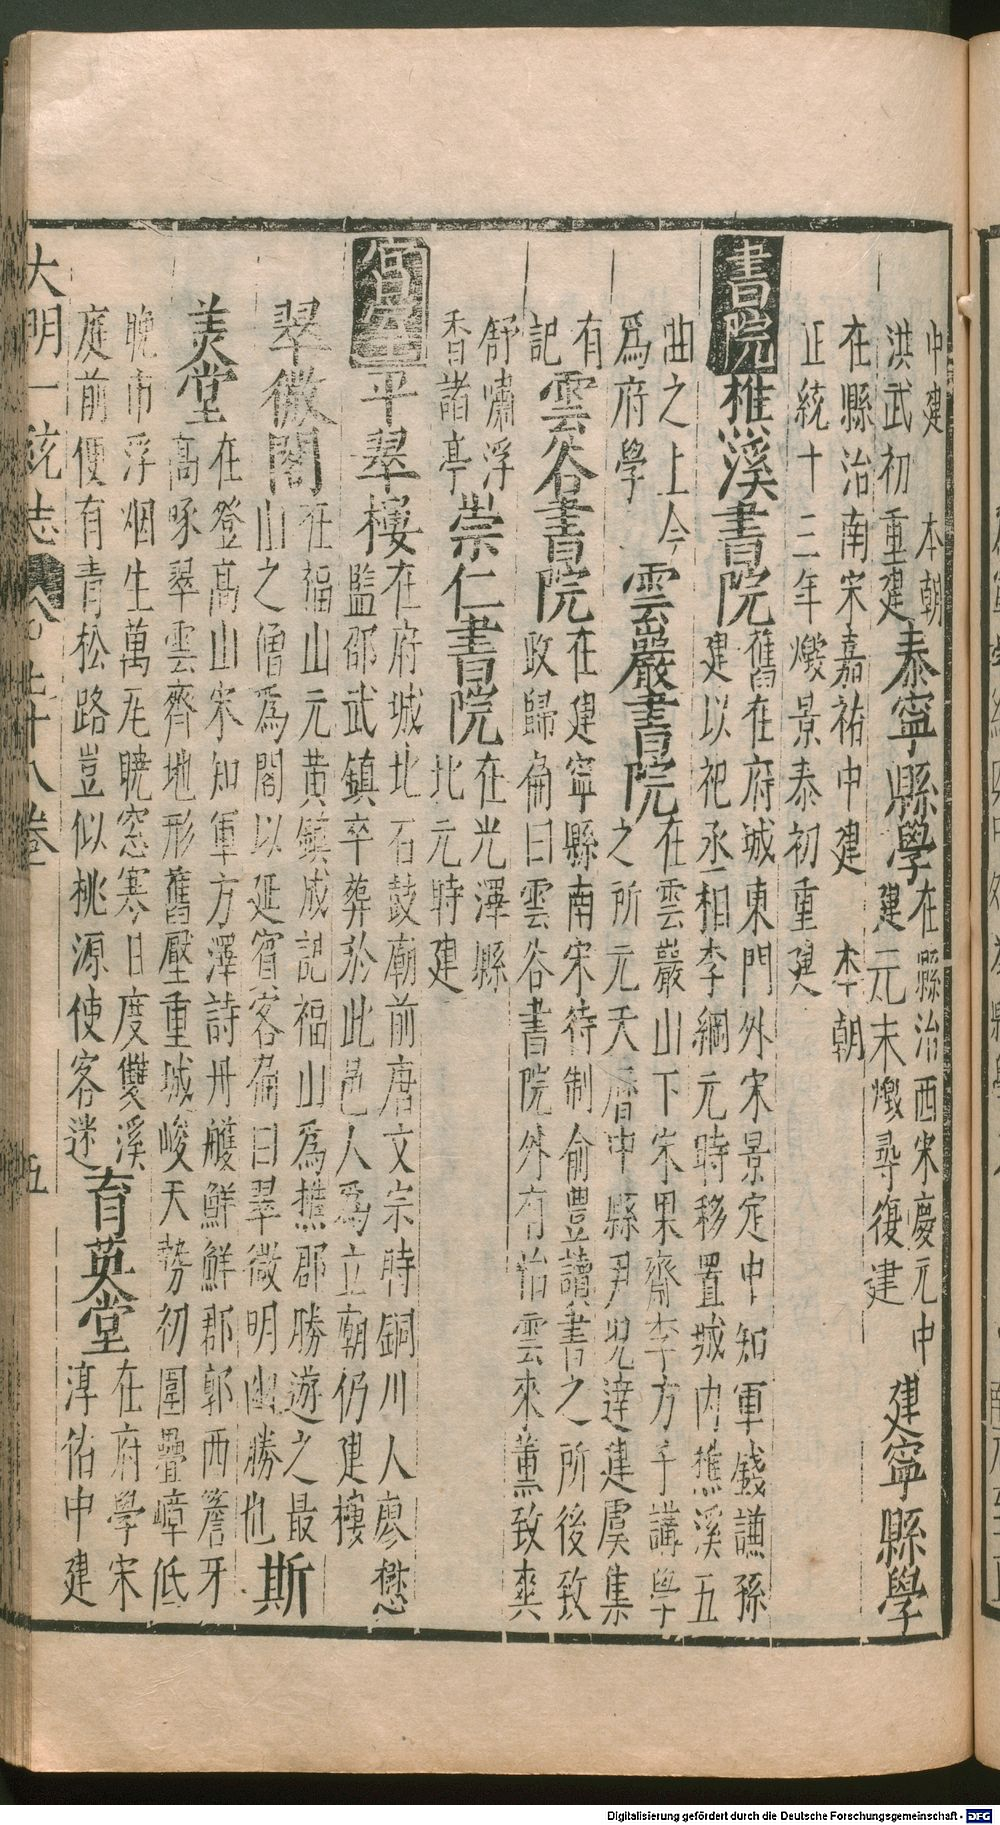 中建　本朝
洪武初重建泰寧縣學在縣治西宋慶元中
建元末燬尋復建　建寧縣學
在縣治南宋嘉祐中建　本朝
正統十三年燬景泰初重建
書院樵溪書院舊在府城東門外宋景定中知軍錢謙孫
建以祀丞相李綱元時移置城内樵溪五
曲之上今
為府學雲巖書院在雲巖山下宋果齋李方子講學
之所元天曆中縣尹兒達建虞集
有
記雲谷書院在建寧縣南宋待制俞豐讀書之所後致
政歸扁曰雲谷書院外有怡雲來薰致爽
舒嘯浮
香諸亭崇仁書院在光澤縣
北元時建
宮室平翠樓在府城北石鼓廟前唐文宗時銅川人廖懋
監邵武鎮卒葬於此邑人為立廟仍建樓
翠微閣在福山元黃鎮成記福山為樵郡勝遊之最
山之僧為閣以延賓客扁曰翠微明幽勝也斯
美堂在登高山宋知軍方澤詩丹艧鮮鮮郡郭西簷牙
高啄翠雲齊地形舊壓重城峻天勢初圍疊嶂低
晚市浮烟生萬瓦曉窓寒日度雙溪
庭前便有青松路豈似桃源使客迷育英堂在府學宋
淳佑中建
大明一統志　七十八卷　五
Digitalisierung gefördert durch die Deutsche Forschungsgemeinschaft - DFG